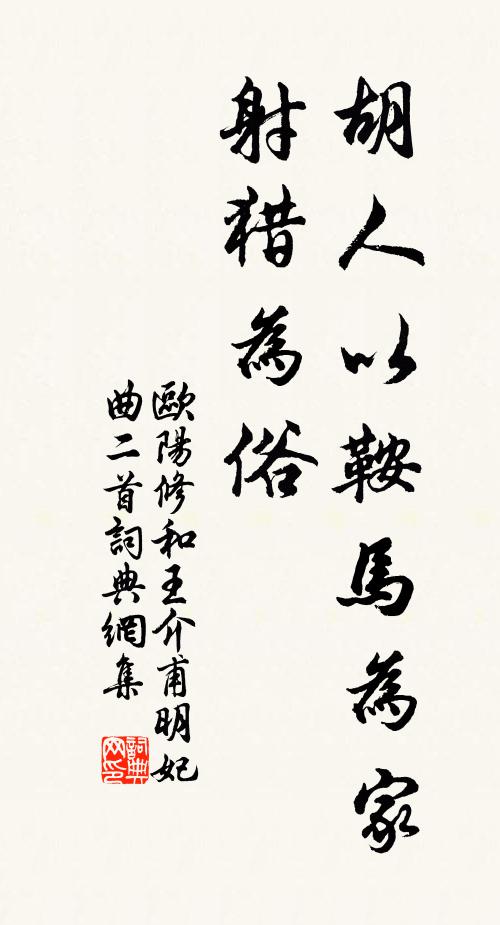 胡人以鞍馬為家
射猎為俗
歐陽修和王介甫明妃
曲二首詞典網集
詞典
网印